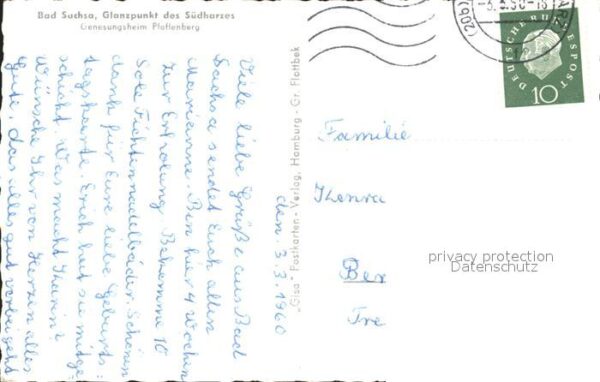 Bad Sachsa, Glanzpunkt des Südharzes
Genesungsheim Pfaffenberg
den. 3.3.1960
Viele liebe Grüße aus Bad
Sachsa sendet Euch allen
Marianne. Bin hier 4 Wochen
zur Erholung. Bekomme 10
Sole Fichtennadelbäder. Schönen
dank für Eure liebe Geburts-
tagskarte. Erich hat sie mitge-
schickt. Was macht Karin?
Wünsche Ihr von Herzen alles
Gute, das alles gut vorbei geht
„Gisa" Postkarten-Verlag, Hamburg-Gr. Flottbek
DEUTSCHE BUNDESPOST
10
Familie
Ber
privacy protection
Datenschutz